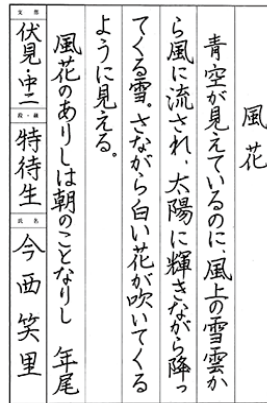 風花
青空が見えているのに、風上の雪雲か
ら風に流され、太陽に輝きながら降っ
てくる雪。さながら白い花が吹いてくる
ように見える。
風花のありしは朝のことなりし　年尾
伏見・中二
特待生
氏名
今西笑里